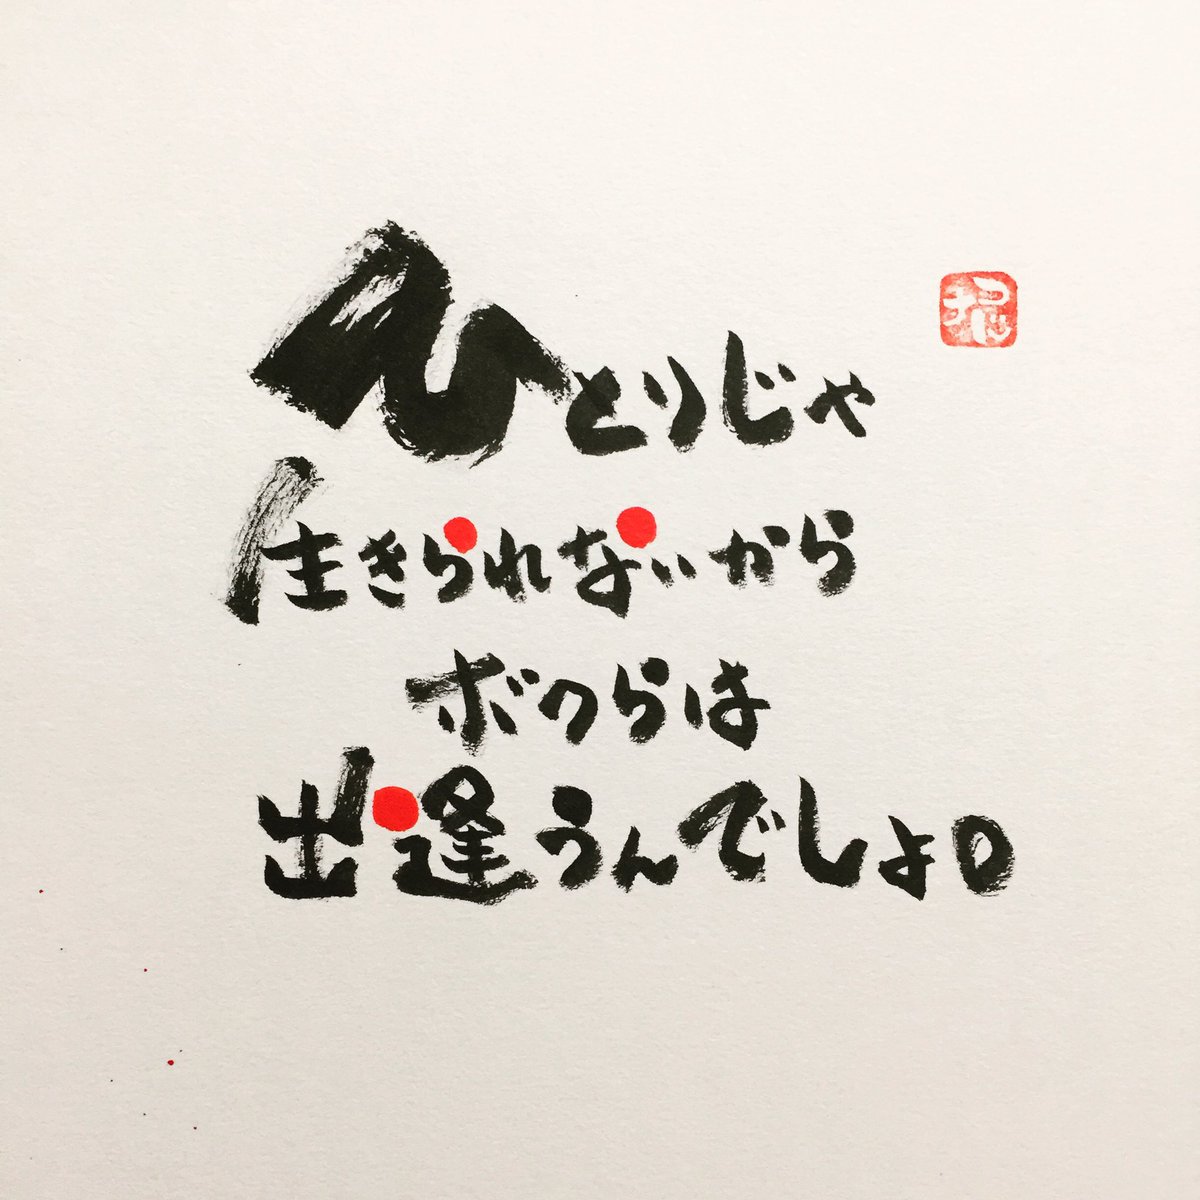 ひとりじゃ
生きられないから
ボクらは
出逢うんでしょ。